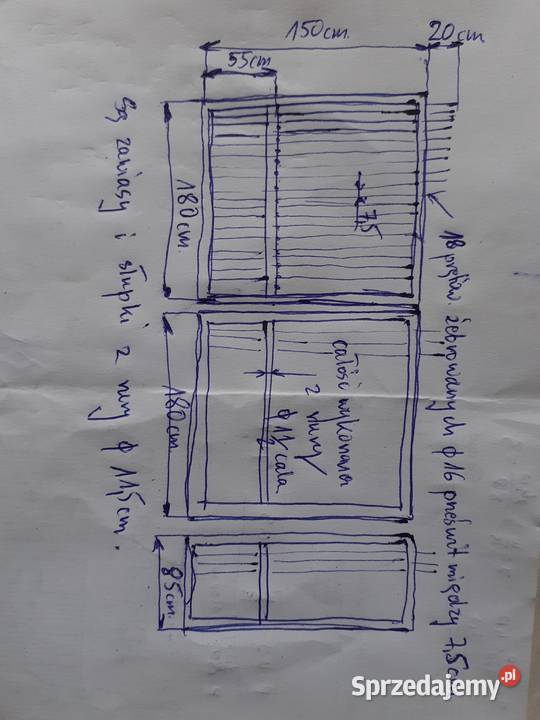 150cm.
20cm
55cm
180cm.
7,5
18 prętów żebrowanych ϕ16 prześwit między 7,5cm
całość wykonana
z rury
ϕ 1 1/2 cala
180cm
85cm.
Są zawiasy i słupki z rury ϕ 11,5cm.
Sprzedajemy.pl